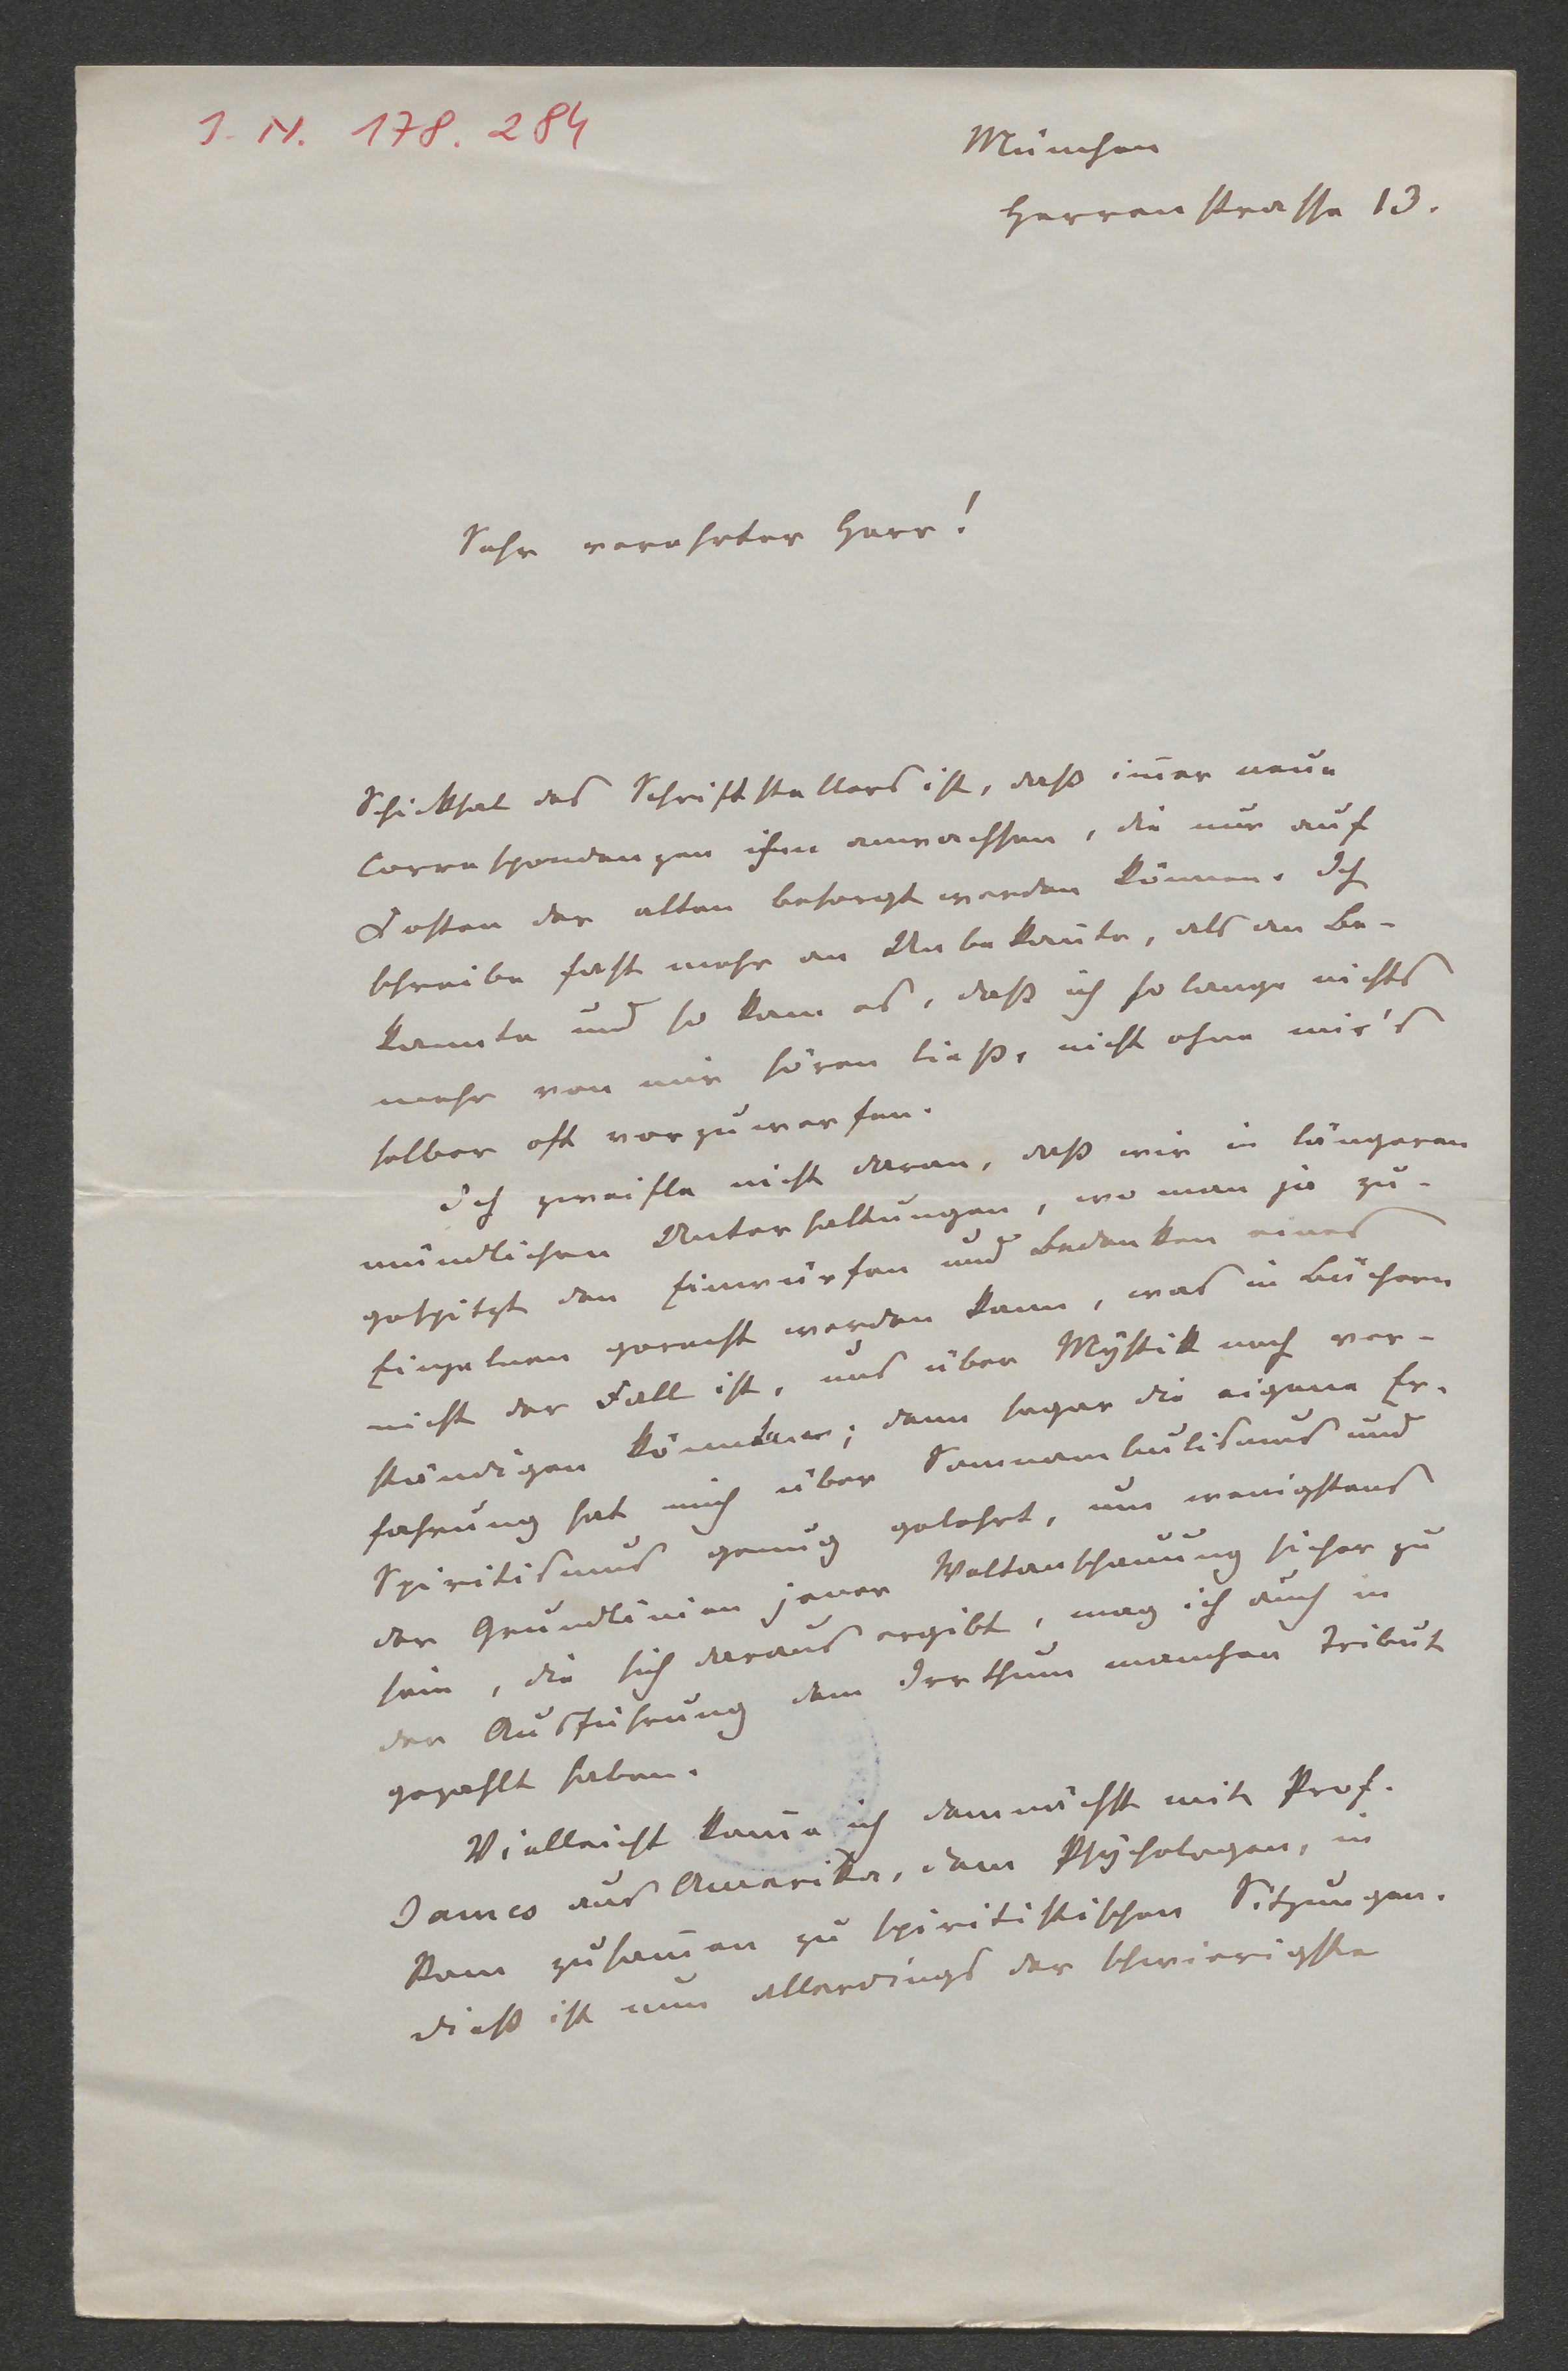 I. N. 178.284
München
Herrenstrasse 13.
Sehr verehrter Herr!
Schicksal des Schriftstellers ist, daß im̅er neue
Correspondenzen ihm anwachsen, die nur auf
Kosten der alten besorgt werden können. Ich
schreibe fast mehr an Unbekan̅te, als an Be-
kannte und so kam es, daß ich so lange nichts
mehr von mir hören ließ, nicht ohne mir's
selber oft vorzuwerfen.
Ich zweifle nicht daran, daß wir in längeren
mündlichen Unterhaltungen, wo man ja zu-
gespitzt den Einwürfen und Bedenken eines
Einzelnen gerecht werden kann, was in Büchern
nicht der Fall ist, uns über Mystik noch ver-
ständigen könnten; denn sogar die eigene Er-
fahrung hat mich über Somnambulismus und
Spiritismus genug gelehrt, um wenigstens
der Grundlinien jener Weltanschauung sicher zu
sein, die sich daraus ergibt, mag ich auch in
der Ausführung dem Irrthum manchen Tribut
gezahlt haben.
Vielleicht kom̅e ich demnächst mit Prof.
James aus Amerika, dem Psychologen, in
Rom zusam̅en zu spiritistischen Sitzungen.
Dieß ist nun allerdings der schwierigste